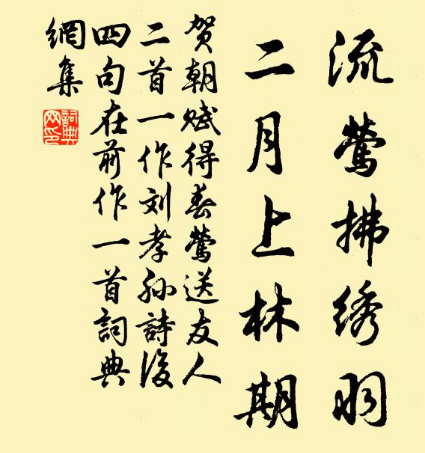 流莺拂绣羽
二月上林期
贺朝赋得春莺送友人
二首一作刘孝孙詩後
四句在前作一首詞典
網集
詞典網印